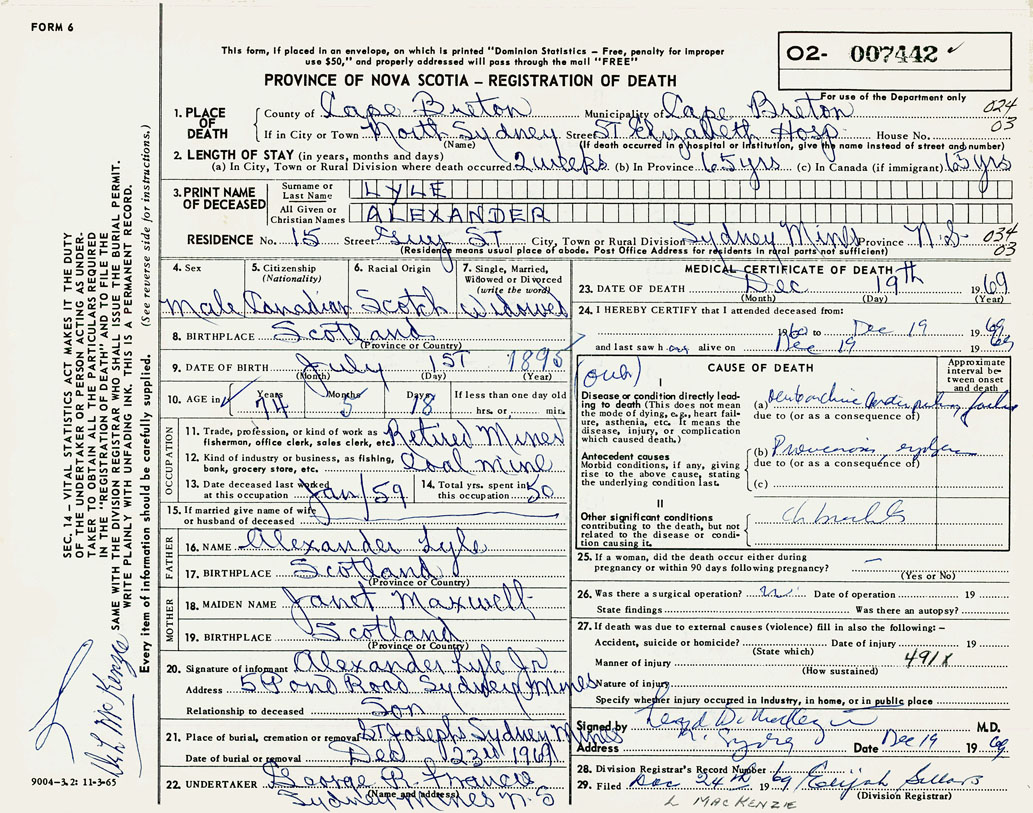 FORM 6
This form, if placed in an envelope, on which is printed "Dominion Statistics – Free, penalty for improper
use $50," and properly addressed will pass through the mail "FREE"
PROVINCE OF NOVA SCOTIA – REGISTRATION OF DEATH
02- 007442
For use of the Department only
024
03
1. PLACE OF DEATH
County of Cape Breton Municipality of Cape Breton
If in City or Town North Sydney Street ST Elizabeth Hosp. House No.
(Name) (If death occurred in a hospital or institution, give the name instead of street and number)
2. LENGTH OF STAY (in years, months and days)
(a) In City, Town or Rural Division where death occurred 2 weeks (b) In Province 65 yrs (c) In Canada (if immigrant) 65 yrs
3. PRINT NAME OF DECEASED
Surname or Last Name LYLE
All Given or Christian Names ALEXANDER
RESIDENCE No. 15 Street Guy ST City, Town or Rural Division Sydney Mines Province N.S.
034
03
(Residence means usual place of abode. Post Office Address for residents in rural parts not sufficient)
4. Sex
Male
5. Citizenship (Nationality)
Canadian
6. Racial Origin
Scotch
7. Single, Married, Widowed or Divorced (write the word)
Widowed
8. BIRTHPLACE Scotland
(Province or Country)
9. DATE OF BIRTH July 1ST 1895
(Month) (Day) (Year)
10. AGE in Years 74 Months 5 Days 18 If less than one day old
hrs. or min.
OCCUPATION
11. Trade, profession, or kind of work as fisherman, office clerk, sales clerk, etc. Retired Miner
12. Kind of industry or business, as fishing, bank, grocery store, etc. Coal mine
13. Date deceased last worked at this occupation Jan/59
14. Total yrs. spent in this occupation 50
15. If married give name of wife or husband of deceased
FATHER
16. NAME Alexander Lyle
17. BIRTHPLACE Scotland
(Province or Country)
MOTHER
18. MAIDEN NAME Janet Maxwell
19. BIRTHPLACE Scotland
(Province or Country)
20. Signature of informant Alexander Lyle Jr
Address 5 Pond Road Sydney Mines
Relationship to deceased Son
21. Place of burial, cremation or removal St Josephs Sydney Mines
Date of burial or removal Dec 23rd 1969
22. UNDERTAKER George
Sydney Mines N.S
(Name and address)
MEDICAL CERTIFICATE OF DEATH
23. DATE OF DEATH Dec 19th 1969
(Month) (Day) (Year)
24. I HEREBY CERTIFY that I attended deceased from:
1960 to Dec 19 1969
and last saw h alive on Dec 19 1969
CAUSE OF DEATH
Approximate interval between onset and death
I
Disease or condition directly leading to death (This does not mean the mode of dying, e.g., heart failure, asthenia, etc. It means the disease, injury, or complication which caused death.)
(a) failure
due to (or as a consequence of)
Antecedent causes
Morbid conditions, if any, giving rise to the above cause, stating the underlying condition last.
(b)
due to (or as a consequence of)
(c)
II
Other significant conditions contributing to the death, but not related to the disease or condition causing it.
25. If a woman, did the death occur either during pregnancy or within 90 days following pregnancy? –
(Yes or No)
26. Was there a surgical operation? Date of operation 19
State findings Was there an autopsy?
27. If death was due to external causes (violence) fill in also the following: –
Accident, suicide or homicide? Date of injury 19
(State which)
Manner of injury 491X
(How sustained)
Nature of injury
Specify whether injury occurred in industry, in home, or in public place
Signed by M.D.
Address N. Sydney Date Dec 19 1969
28. Division Registrar's Record Number
29. Filed Dec 24 1969 Elijah Sellars
(Division Registrar)
L MACKENZIE
SEC. 14 – VITAL STATISTICS ACT MAKES IT THE DUTY
OF THE UNDERTAKER OR PERSON ACTING AS UNDER-
TAKER TO OBTAIN ALL THE PARTICULARS REQUIRED
IN THE "REGISTRATION OF DEATH" AND TO FILE THE
SAME WITH THE DIVISION REGISTRAR WHO SHALL ISSUE THE BURIAL PERMIT.
WRITE PLAINLY WITH UNFADING INK. THIS IS A PERMANENT RECORD.
Every item of information should be carefully supplied. (See reverse side for instructions.)
McKenzie
9004–3.2: 11-3-65